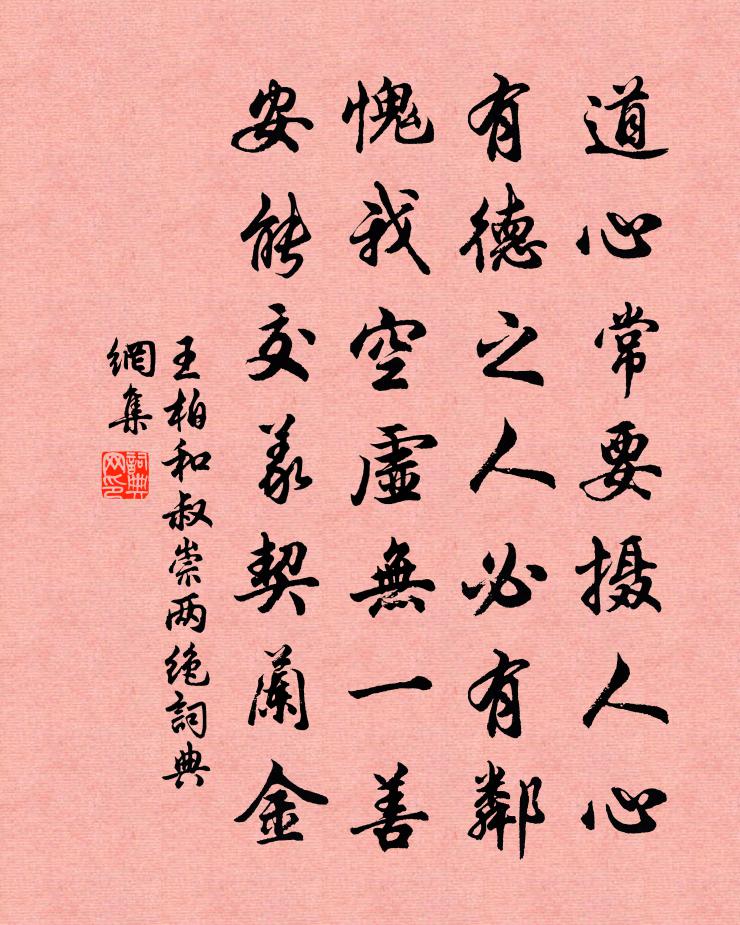 道心常要摄人心
有德之人必有鄰
愧我空虛無一善
安能交義契蘭金
王柏和叔崇两绝詞典
網集
詞典
网印